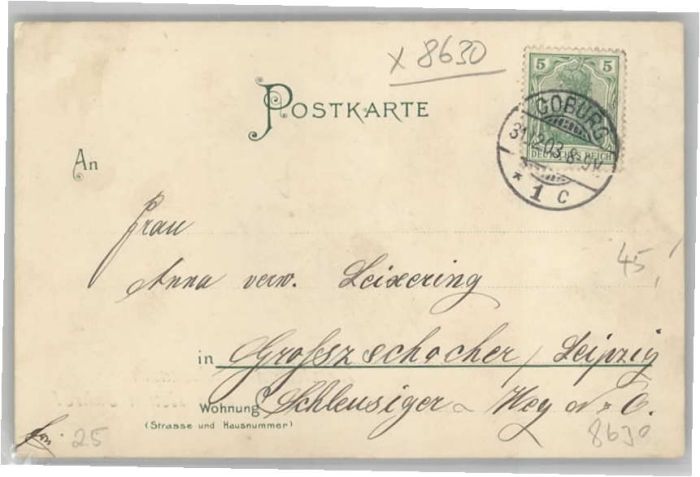 x 8630
POSTKARTE
5 5
DEUTSCHES REICH
COBURG
31.12.03.8-9V
* 1 C
An
Frau
Anna verw. Leixering
45,
in Grosszschocher / Leipzig
Wohnung Schleusiger Weg
(Strasse und Hausnummer)
25
8630